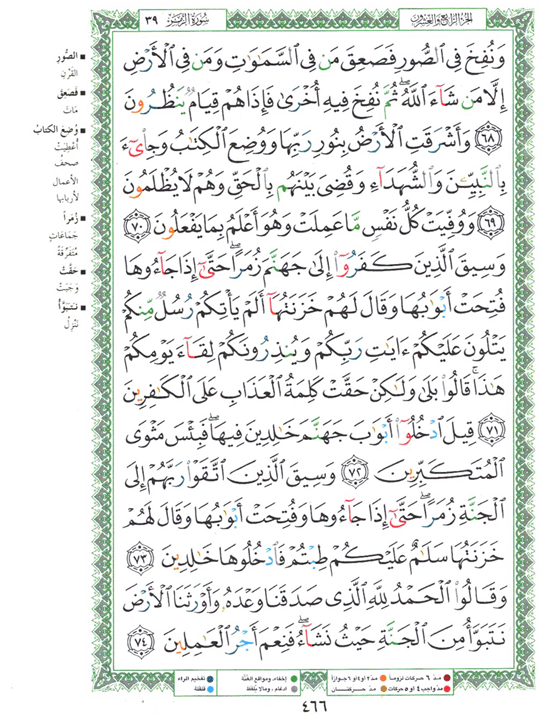 الجزء الرابع والعشرون
سورة الزمر
٣٩
وَنُفِخَ فِى ٱلصُّورِ فَصَعِقَ مَن فِى ٱلسَّمَٰوَٰتِ وَمَن فِى ٱلْأَرْضِ
إِلَّا مَن شَآءَ ٱللَّهُ ۖ ثُمَّ نُفِخَ فِيهِ أُخْرَىٰ فَإِذَا هُمْ قِيَامٌ يَنظُرُونَ
٦٨ وَأَشْرَقَتِ ٱلْأَرْضُ بِنُورِ رَبِّهَا وَوُضِعَ ٱلْكِتَٰبُ وَجِا۟ىٓءَ
بِٱلنَّبِيِّـۧنَ وَٱلشُّهَدَآءِ وَقُضِىَ بَيْنَهُم بِٱلْحَقِّ وَهُمْ لَا يُظْلَمُونَ
٦٩ وَوُفِّيَتْ كُلُّ نَفْسٍ مَّا عَمِلَتْ وَهُوَ أَعْلَمُ بِمَا يَفْعَلُونَ ٧٠
وَسِيقَ ٱلَّذِينَ كَفَرُوٓا۟ إِلَىٰ جَهَنَّمَ زُمَرًا ۖ حَتَّىٰٓ إِذَا جَآءُوهَا
فُتِحَتْ أَبْوَٰبُهَا وَقَالَ لَهُمْ خَزَنَتُهَآ أَلَمْ يَأْتِكُمْ رُسُلٌ مِّنكُمْ
يَتْلُونَ عَلَيْكُمْ ءَايَٰتِ رَبِّكُمْ وَيُنذِرُونَكُمْ لِقَآءَ يَوْمِكُمْ
هَٰذَا ۚ قَالُوا۟ بَلَىٰ وَلَٰكِنْ حَقَّتْ كَلِمَةُ ٱلْعَذَابِ عَلَى ٱلْكَٰفِرِينَ
٧١ قِيلَ ٱدْخُلُوٓا۟ أَبْوَٰبَ جَهَنَّمَ خَٰلِدِينَ فِيهَا ۖ فَبِئْسَ مَثْوَى
ٱلْمُتَكَبِّرِينَ ٧٢ وَسِيقَ ٱلَّذِينَ ٱتَّقَوْا۟ رَبَّهُمْ إِلَى
ٱلْجَنَّةِ زُمَرًا ۖ حَتَّىٰٓ إِذَا جَآءُوهَا وَفُتِحَتْ أَبْوَٰبُهَا وَقَالَ لَهُمْ
خَزَنَتُهَا سَلَٰمٌ عَلَيْكُمْ طِبْتُمْ فَٱدْخُلُوهَا خَٰلِدِينَ ٧٣
وَقَالُوا۟ ٱلْحَمْدُ لِلَّهِ ٱلَّذِى صَدَقَنَا وَعْدَهُۥ وَأَوْرَثَنَا ٱلْأَرْضَ
نَتَبَوَّأُ مِنَ ٱلْجَنَّةِ حَيْثُ نَشَآءُ ۖ فَنِعْمَ أَجْرُ ٱلْعَٰمِلِينَ ٧٤
■ الصُّورِ
القَرْنِ
■ فَصَعِقَ
مَاتَ
■ وُضِعَ الكتابُ
أُعْطِيَتْ
صحفُ
الأعمالِ
لأربابها
■ زُمَراً
جَمَاعَاتٍ
مُتَفَرِّقَةً
■ حَقَّتْ
وَجَبَتْ
■ نَتَبَوَّأُ
نَنْزِلُ
مدّ ٦ حركات لزوماً
مدّ ٢ أو ٤ أو ٦ جوازاً
إخفاء، ومواقع الغُنَّة
تفخيم الراء
مدّ واجب ٤ أو ٥ حركات
مدّ حركتان
ادغام، وما لا يلفظ
قلقلة
٤٦٦